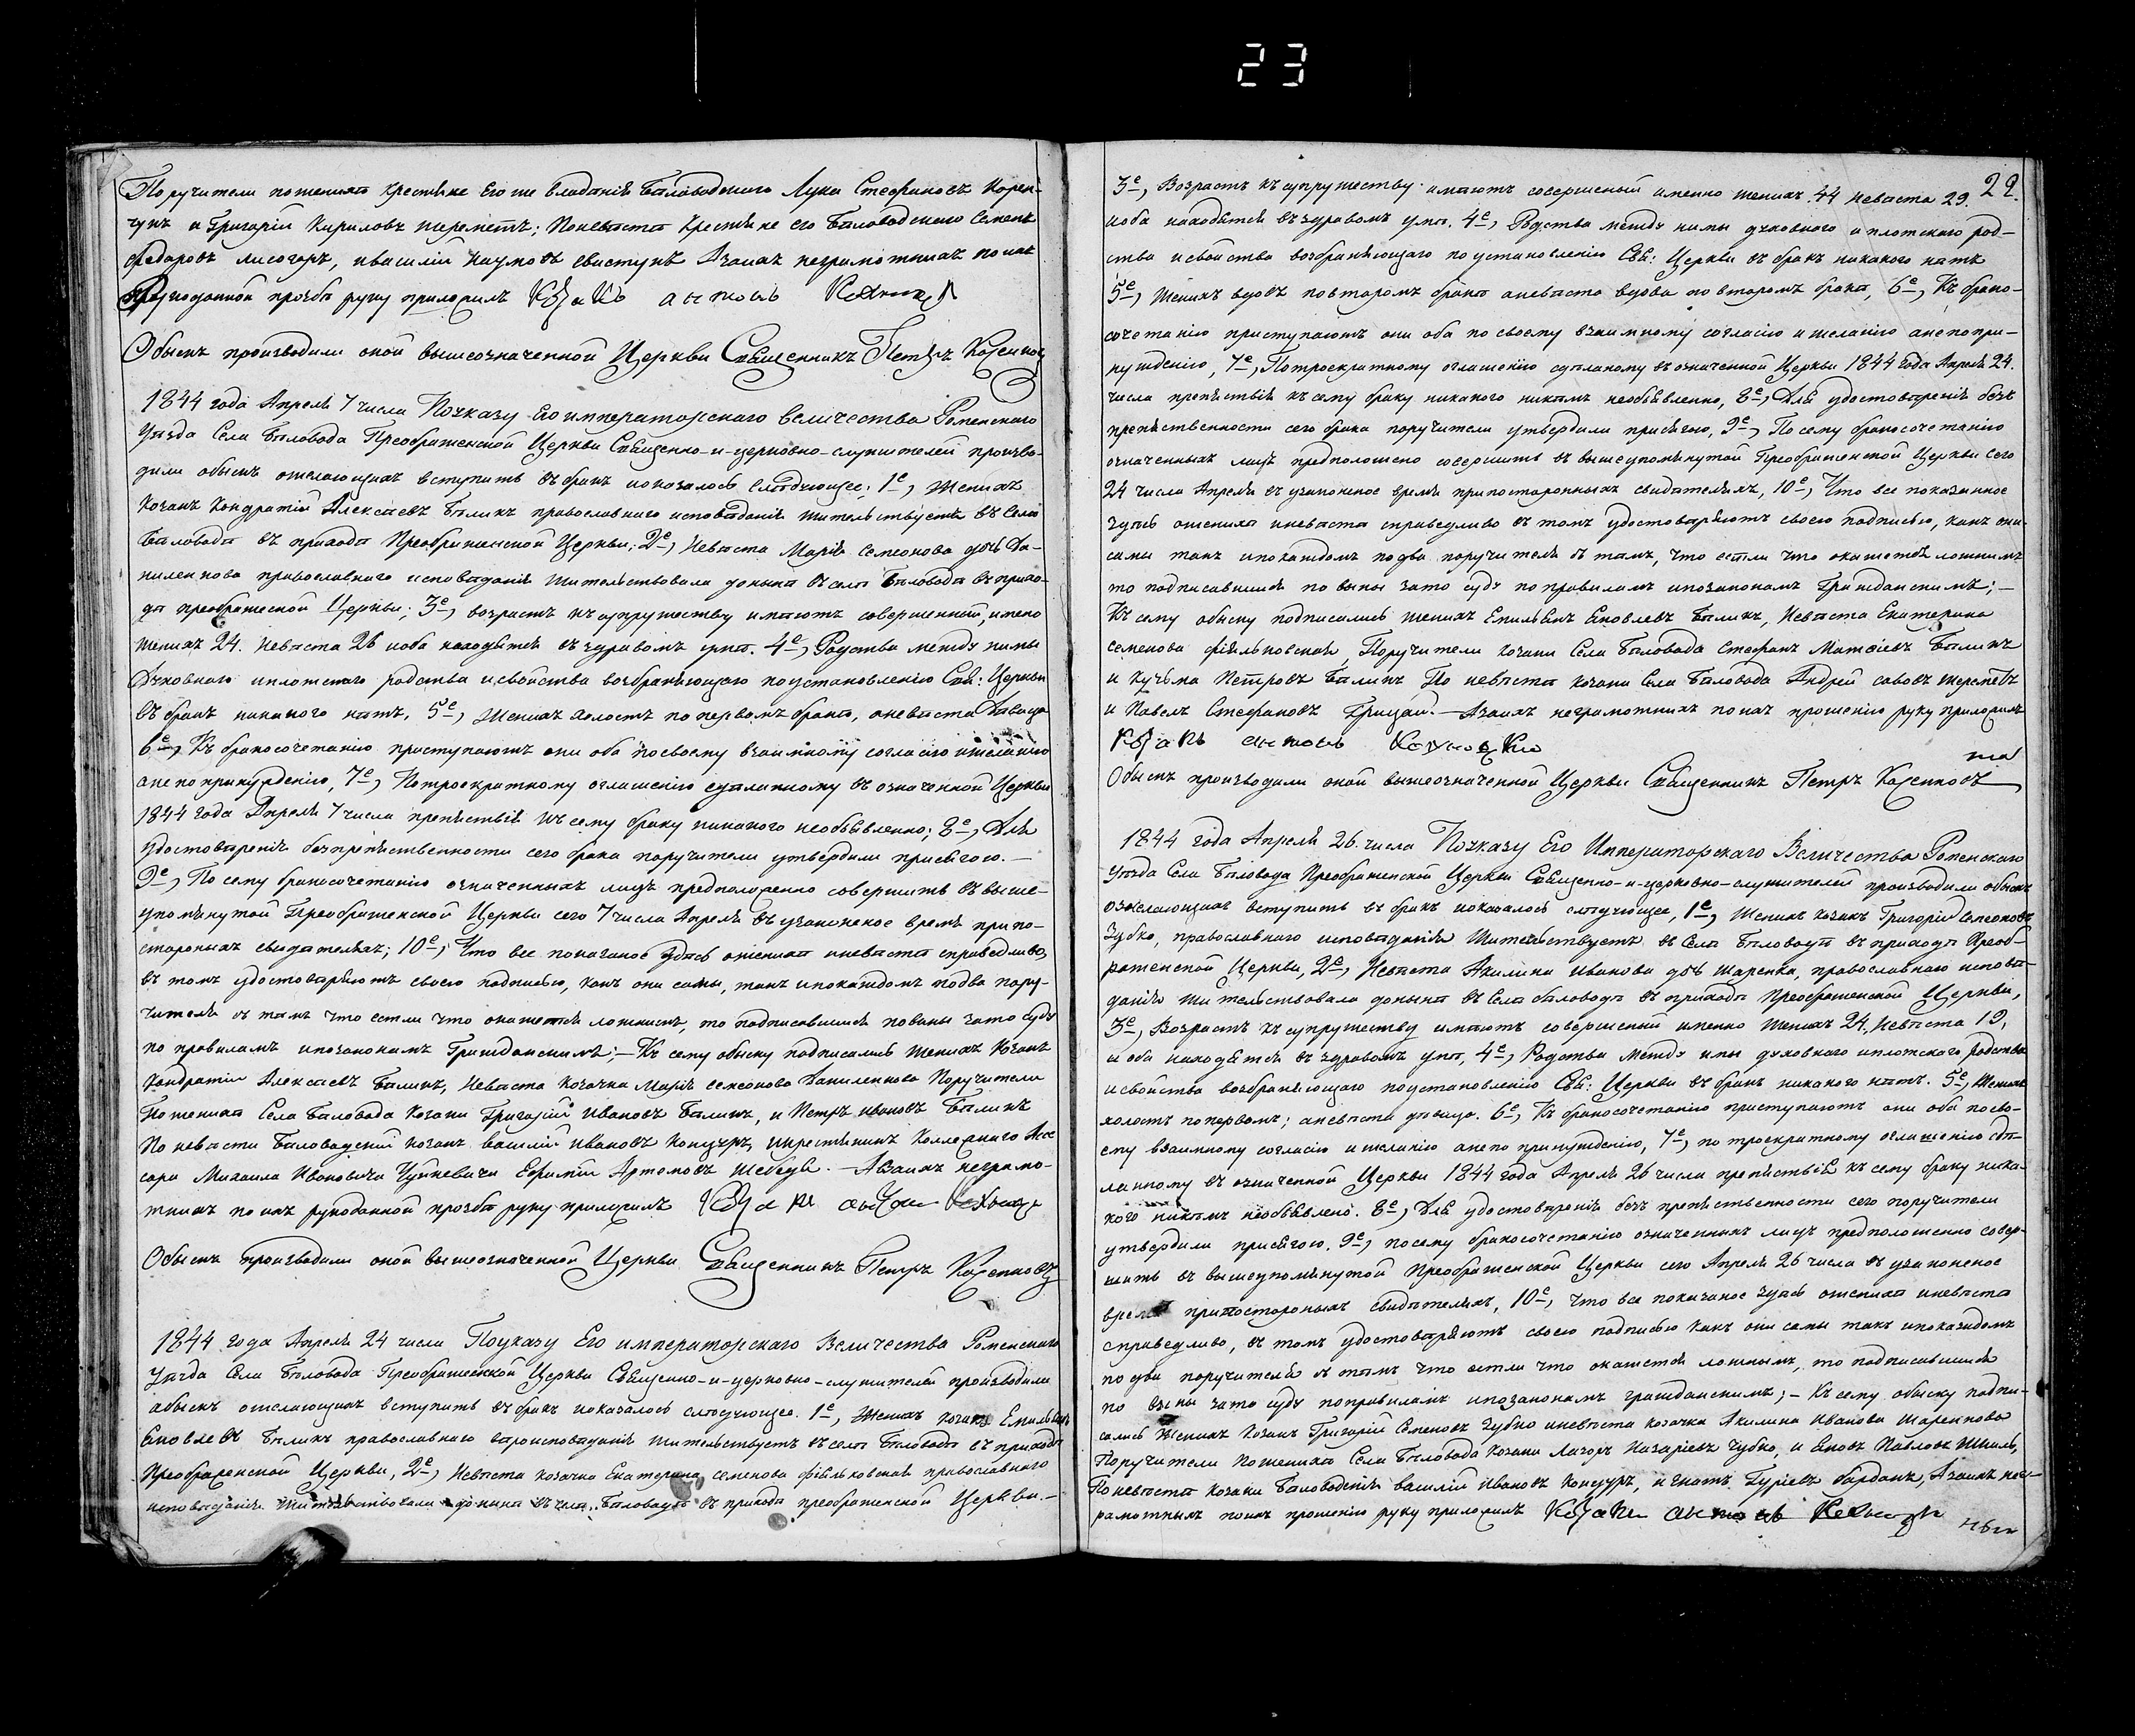 23
Поручители пожениха крестяне Его же владѣнія Бѣловодского Лука Стефановъ
и Григорій Кириловъ шереметъ; Поневѣста Крестяне его Бѣловодского Семенъ
федоровъ лисогоръ, ивасилій наумовъ свистунъ Азаихъ неграмотныхъ по ихъ
прозбѣ руку приложилъ Козакъ
Обыскъ производили оной вышеозначенной Церкви Священникъ Петръ
1844 года Апреля 7 числа Поуказу Его императорского величества Роменского
уѣзда Села Бѣловода Преображенской Церкви Священно-и-церковно-служителей произво-
дили обыскъ ожелающихъ вступить въ бракъ ипоказалось слѣдующее; 1е, Женихъ
Козакъ Кондратій Алексѣевъ Балихъ православного исповѣданія жительствуетъ въ селѣ
Бѣловода въ приходѣ Преображенской Церкви; 2е, Невѣста Марія семеонова дочь Да-
ниленкова православного исповѣданія жительствовала донынѣ въ селѣ Бѣловода въ прихо-
дѣ преображеской Церкви; 3е, возрастъ къ супружеству имѣютъ совершенный, имено
Женихъ 24. Невѣста 26 иоба находятся въ здравомъ умѣ. 4е, Родства между ними
Духовнаго иплотского родства исвойства возбраняющаго поустановленію Свя: Церкви
въ бракъ никакого нѣтъ, 5е, Женихъ холостъ попервомъ бракѣ, аневѣста дѣвица
6е, Къ бракосочетанію приступаютъ они оба посвоему взаимному согласію ижеланію
ане попринужденію, 7е, Потроекратному оглашенію сдѣланному въ означенной Церкви
1844 года Апреля 7 числа препятствій къ сему браку никакого необъявленно; 8е, Для
удостовѣренія безпрепятственности сего брака поручители утвердили присягою. —
9е, По сему бракосочетанію означенныхъ лицъ предположенно совершить въ выше-
упомянутой Преображенской Церкви сего 7 числа Апреля въ узаконеное время припо-
стороныхъ свидѣтеляхъ; 10е, Что все показаное здѣсь ожениха иневѣста справедливо,
въ томъ удостовѣряютъ своею подписью, какъ они самы, такъ ипокаждомъ подва пору-
чителя съ тѣмъ что естли что окажется ложнымъ, то подписавшіися повины зато суду
по правиламъ ипозаконамъ Гражданскимъ; — Къ сему обыску подписались женихъ Козакъ
Кондратій Алексѣевъ Балихъ, Невѣста Козачка Марія семеонова Даниленкова Поручители
Пожениха Села Бѣловода козаки Григорій Ивановъ Балихъ, и Петръ ивановъ Балихъ
По невѣсти Бѣловодскій козакъ василій Ивановъ Концуръ, икрестянинъ Колежскаго Ассе
сора Михаила Ивановича Ефимій Артемовъ шебедя. — Азаихъ неграмо-
тныхъ по ихъ рукоданной прозбѣ руку приложилъ Козакъ
Обыскъ производили оной вышеозначенной Церкви Священникъ Петръ
1844 года Апреля 24 числа Поуказу Его императорского Величества Роменского
уѣзда Села Бѣловода Преображенской Церкви Священно-и-церковно-служителей производили
обыскъ ожелающихъ вступить въ бракъ ипоказалось слѣдующее. 1е, Женихъ козакъ
Яковлевъ Балихъ православнаго вѣроисповѣданія жительствуетъ въ селѣ Бѣловода въ приходѣ
Преображенской Церкви, 2е, Невѣста козачка Екатерина семенова православного
исповѣданія жительствовала донынѣ въ селѣ Бѣловода въ приходѣ преображенской Церкви. —
29.
3е, Возрастъ къ супружеству имѣютъ совершеный именно женихъ 44 невѣста 29.
иоба находятся въ здравомъ умѣ. 4е, Родства между ними духовного и плотского род-
ства исвойства возбраняющаго по установленію Свя: Церкви въ бракъ никакого нѣтъ
5е, Женихъ вдовъ повторомъ бракѣ аневѣста вдова по второмъ бракѣ, 6е, Къ брако-
сочетанію приступаютъ они оба по своему взаимному согласію и желанію ане попри-
нужденію, 7е, Потроекратному оглашенію сдѣланому въ означенной Церкви 1844 года Апреля 24.
числа препятствія къ сему браку никакого никѣмъ необъявленно, 8е, Для удостовѣренія безъ
препятственности сего брака поручители утвердили присягою, 9е, По сему бракосочетанію
означенныхъ лицъ предположено совершить въ вышеупомянутой Преображенской Церкви сего
24 числа Апреля въ узаконеное время припосторонныхъ свидѣтеляхъ, 10е, Что все показанное
здѣсь ожениха иневѣста справедливо въ томъ удостовѣряютъ своею подписью, какъ они
самы такъ ипокаждомъ подва поручителя съ тѣмъ, что естли что окажется ложнымъ
то подписавшіися повины зато суду по правиламъ ипозаконамъ Гражданскимъ; —
Къ сему обыску подписались женихъ Яковлевъ Балихъ, Невѣста Екатерина
семенова Поручители козаки Села Бѣловода Стефанъ Матѳіевъ Балихъ
и Кузьма Петровъ Балихъ По невѣста козаки Села Бѣловода Андрей савовъ шереметъ
и Павелъ Стефановъ Грицай. — Азаихъ неграмотныхъ по ихъ прошенію руку приложилъ
Козакъ
Обыскъ производили оной вышеозначенной Церкви Священникъ Петръ
1844 года Апреля 26. числа Поуказу Его Императорскаго Величества Роменскаго
уѣзда Села Бѣловода Преображенской Церкви Священно-и-церковно-служителей производили обыскъ
ожелающихъ вступить въ бракъ ипоказалось слѣдующее, 1е, Женихъ козакъ Григорій Семеоновъ
Зубко, православного исповѣданія Жительствуетъ въ Селѣ Бѣловодѣ въ приходѣ Преоб-
раженской Церкви, 2е, Невѣста Акилина иванова дочь православнаго исповѣ-
данія жительствовала донынѣ въ Селѣ бѣловодѣ въ приходѣ Преображенской Церкви,
3е, Возрастъ къ супружеству имѣютъ совершеный именно Женихъ 24. Невѣста 19,
и оба находятся въ здравомъ умѣ, 4е, Родства между ими духовнаго иплотскаго родства
исвойства возбраняющаго поустановленію Свя: Церкви въ бракъ никакого нѣтъ. 5е, Женихъ
холостъ попервомъ; аневѣста дѣвица. 6е, Къ бракосочетанію приступаютъ они оба посво-
ему взаимному согласію и желанію ане по принужденію, 7е, по троекратному оглашенію сдѣ-
ланному въ означенной Церкви 1844 года Апреля 26 числа препятствія къ сему браку ника-
кого никѣмъ необъявлено. 8е, Для удостовѣренія безъ препятственности сего поручители
утвердили присягою. 9е, посему бракосочетанію означенныхъ лицъ предположенно совер-
шить въ вышеупомянутой Преображенской Церкви сего Апреля 26 числа въ узаконеное
время припостороныхъ свидѣтеляхъ, 10е, Что все показаное здѣсь ожениха иневѣста
справедливо, въ томъ удостовѣряютъ своею подписью какъ они самы такъ ипокаждомъ
по два поручителя съ тѣмъ что естли что окажется ложнымъ, то подписавшіися
по вины зато суду поправиламъ ипозаконамъ гражданскимъ; — Къ сему обыску подпи-
сались Женихъ Козакъ Григорій Семеновъ Зубко иневѣста козачка Акилина Иванова
Поручители Пожениха Села Бѣловода Козаки Назаріевъ Зубко и Яковъ Павловъ
Поневѣста козаки Бѣловодскія василій Ивановъ Концуръ, и гнатъ Гуріевъ Азаихъ нег-
рамотныхъ поихъ прошенію руку приложилъ Козакъ